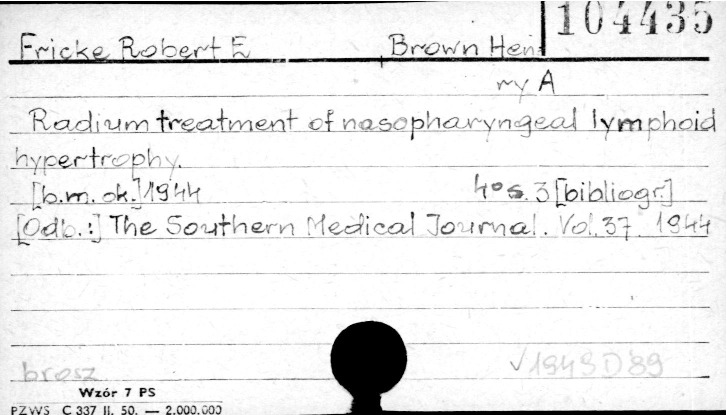 104435
Fricke Robert E Brown Hen
ry A
Radium treatment of nasopharyngeal lymphoid
hypertrophy.
[b.m. ok.] 1944 4° s. 3 [bibliogr.]
[Odb.:] The Southern Medical Journal. Vol. 37. 1944
brosz √1949 D 89
Wzór 7 PS
PZWS C 337 II. 50. — 2.000.000